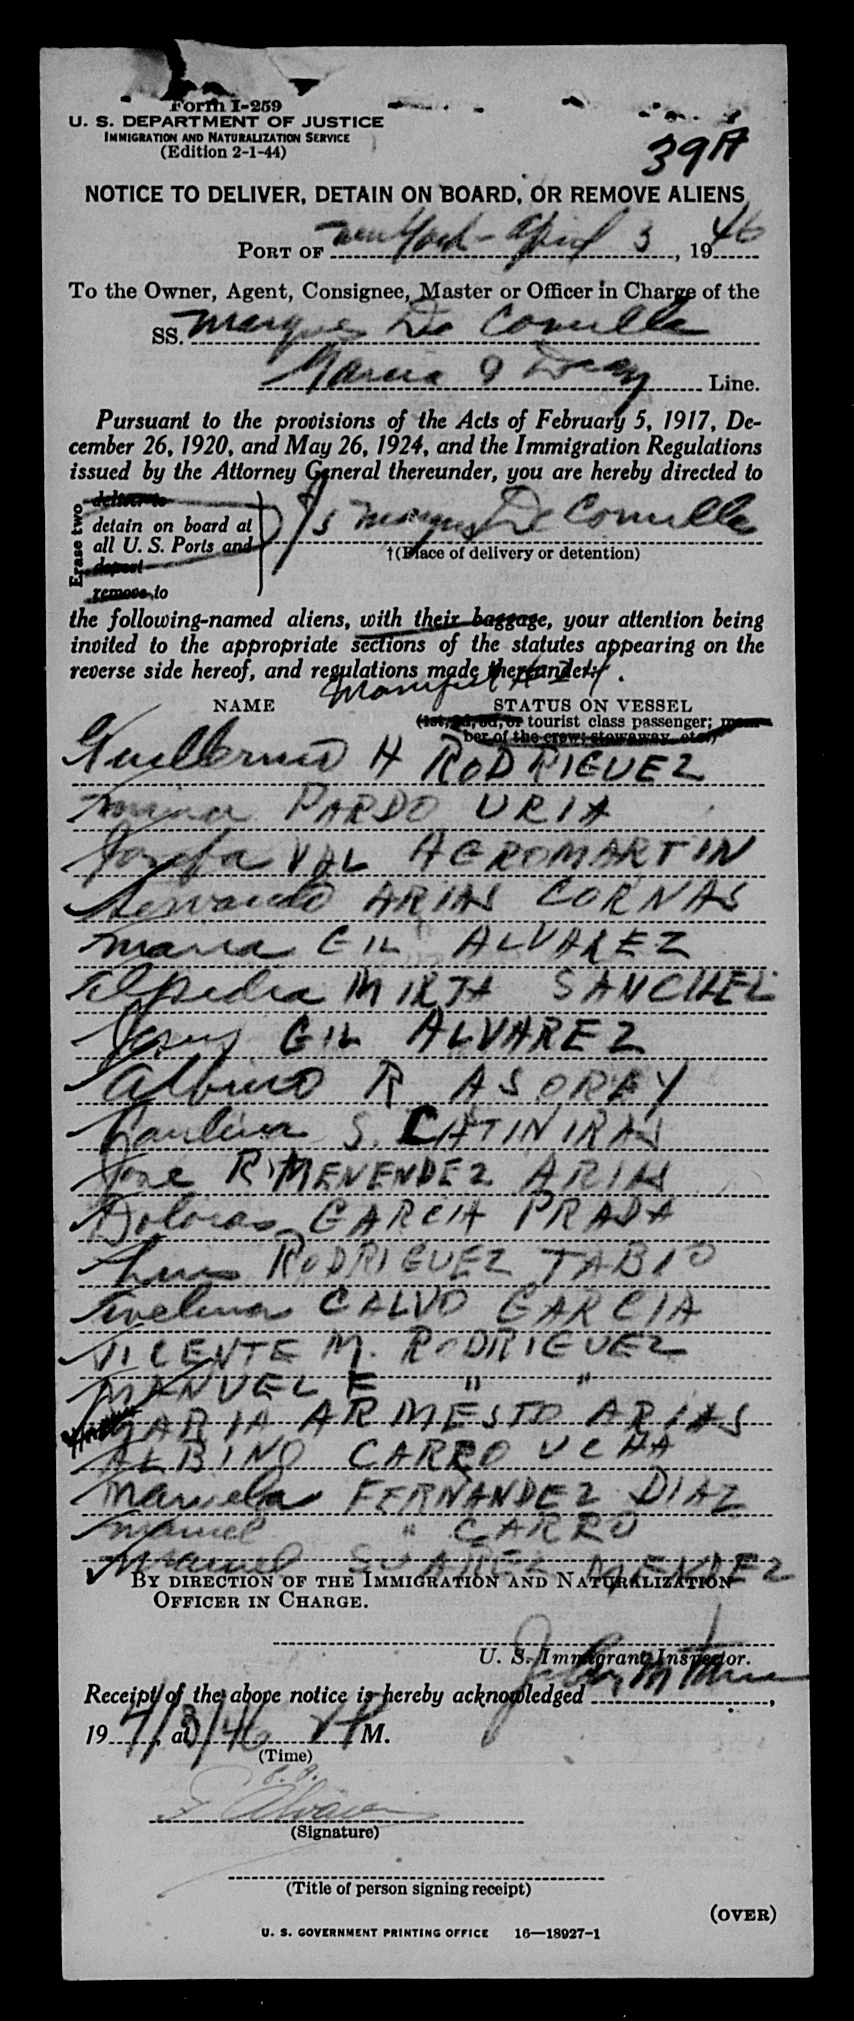 Form I-259
U. S. DEPARTMENT OF JUSTICE
IMMIGRATION AND NATURALIZATION SERVICE
(Edition 2-1-44)
39A
NOTICE TO DELIVER, DETAIN ON BOARD, OR REMOVE ALIENS
PORT OF New York - April 3, 1946
To the Owner, Agent, Consignee, Master or Officer in Charge of the
SS. Marques De Comillas
Garcia & Diaz Line.
Pursuant to the provisions of the Acts of February 5, 1917, De-
cember 26, 1920, and May 26, 1924, and the Immigration Regulations
issued by the Attorney General thereunder, you are hereby directed to
Erase two
deliver to
detain on board at
all U. S. Ports and
deport
remove to
S/S Marques De Comillas
†(Place of delivery or detention)
the following-named aliens, with their baggage, your attention being
invited to the appropriate sections of the statutes appearing on the
reverse side hereof, and regulations made thereunder:
Manifest #
NAME STATUS ON VESSEL
(1st, 2d, 3d, or tourist class passenger; mem-
ber of the crew; stowaway, etc.)
Guillermo H RODRIGUEZ
PARDO URIA
Josefa VAL AGROMARTIN
Servando ARIAS CORNAS
Maria GIL ALVAREZ
Elpidia MIRTA SANCHEZ
Jesus GIL ALVAREZ
Albino R ASOREY
Paulina S. CATINIRAS
Jose R. MENENDEZ ARIAS
Dolores GARCIA PRADA
Luis RODRIGUEZ TABIO
Avelina CALVO GARCIA
VICENTE M. RODRIGUEZ
MANUEL E " "
MARIA ARMESTO ARIAS
ALBINO CARRO UCHA
Manuela FERNANDEZ DIAZ
Manuel " CARRO
Manuel SUAREZ MENDEZ
BY DIRECTION OF THE IMMIGRATION AND NATURALIZATION
OFFICER IN CHARGE.
U. S. Immigrant Inspector.
Receipt of the above notice is hereby acknowledged
19 4/3/46, at M.
(Time)
(Signature)
(Title of person signing receipt)
(OVER)
U. S. GOVERNMENT PRINTING OFFICE 16—18927-1